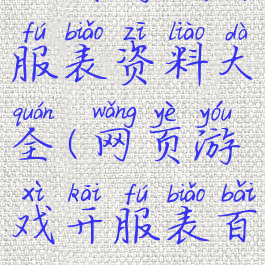 fú biǎo zī liào dà
服表资料大
quán wǎng yè yóu
全(网页游
xì kāi fú biǎo bǎi
戏开服表百